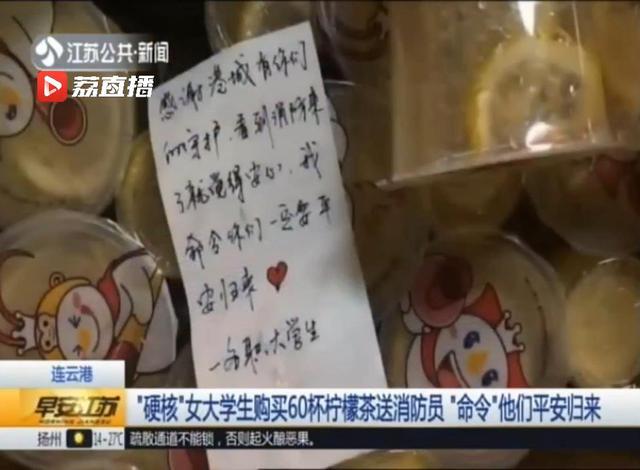 江苏公共·新闻
荔直播
感谢港城有你们
的守护,看到消防来
了就觉得安心,我
命令你们一定要平
安归来
一名职大学生
连云港
早安江苏
"硬核"女大学生购买60杯柠檬茶送消防员 "命令"他们平安归来
扬州 14-27℃ 疏散通道不能锁,否则起火酿恶果。